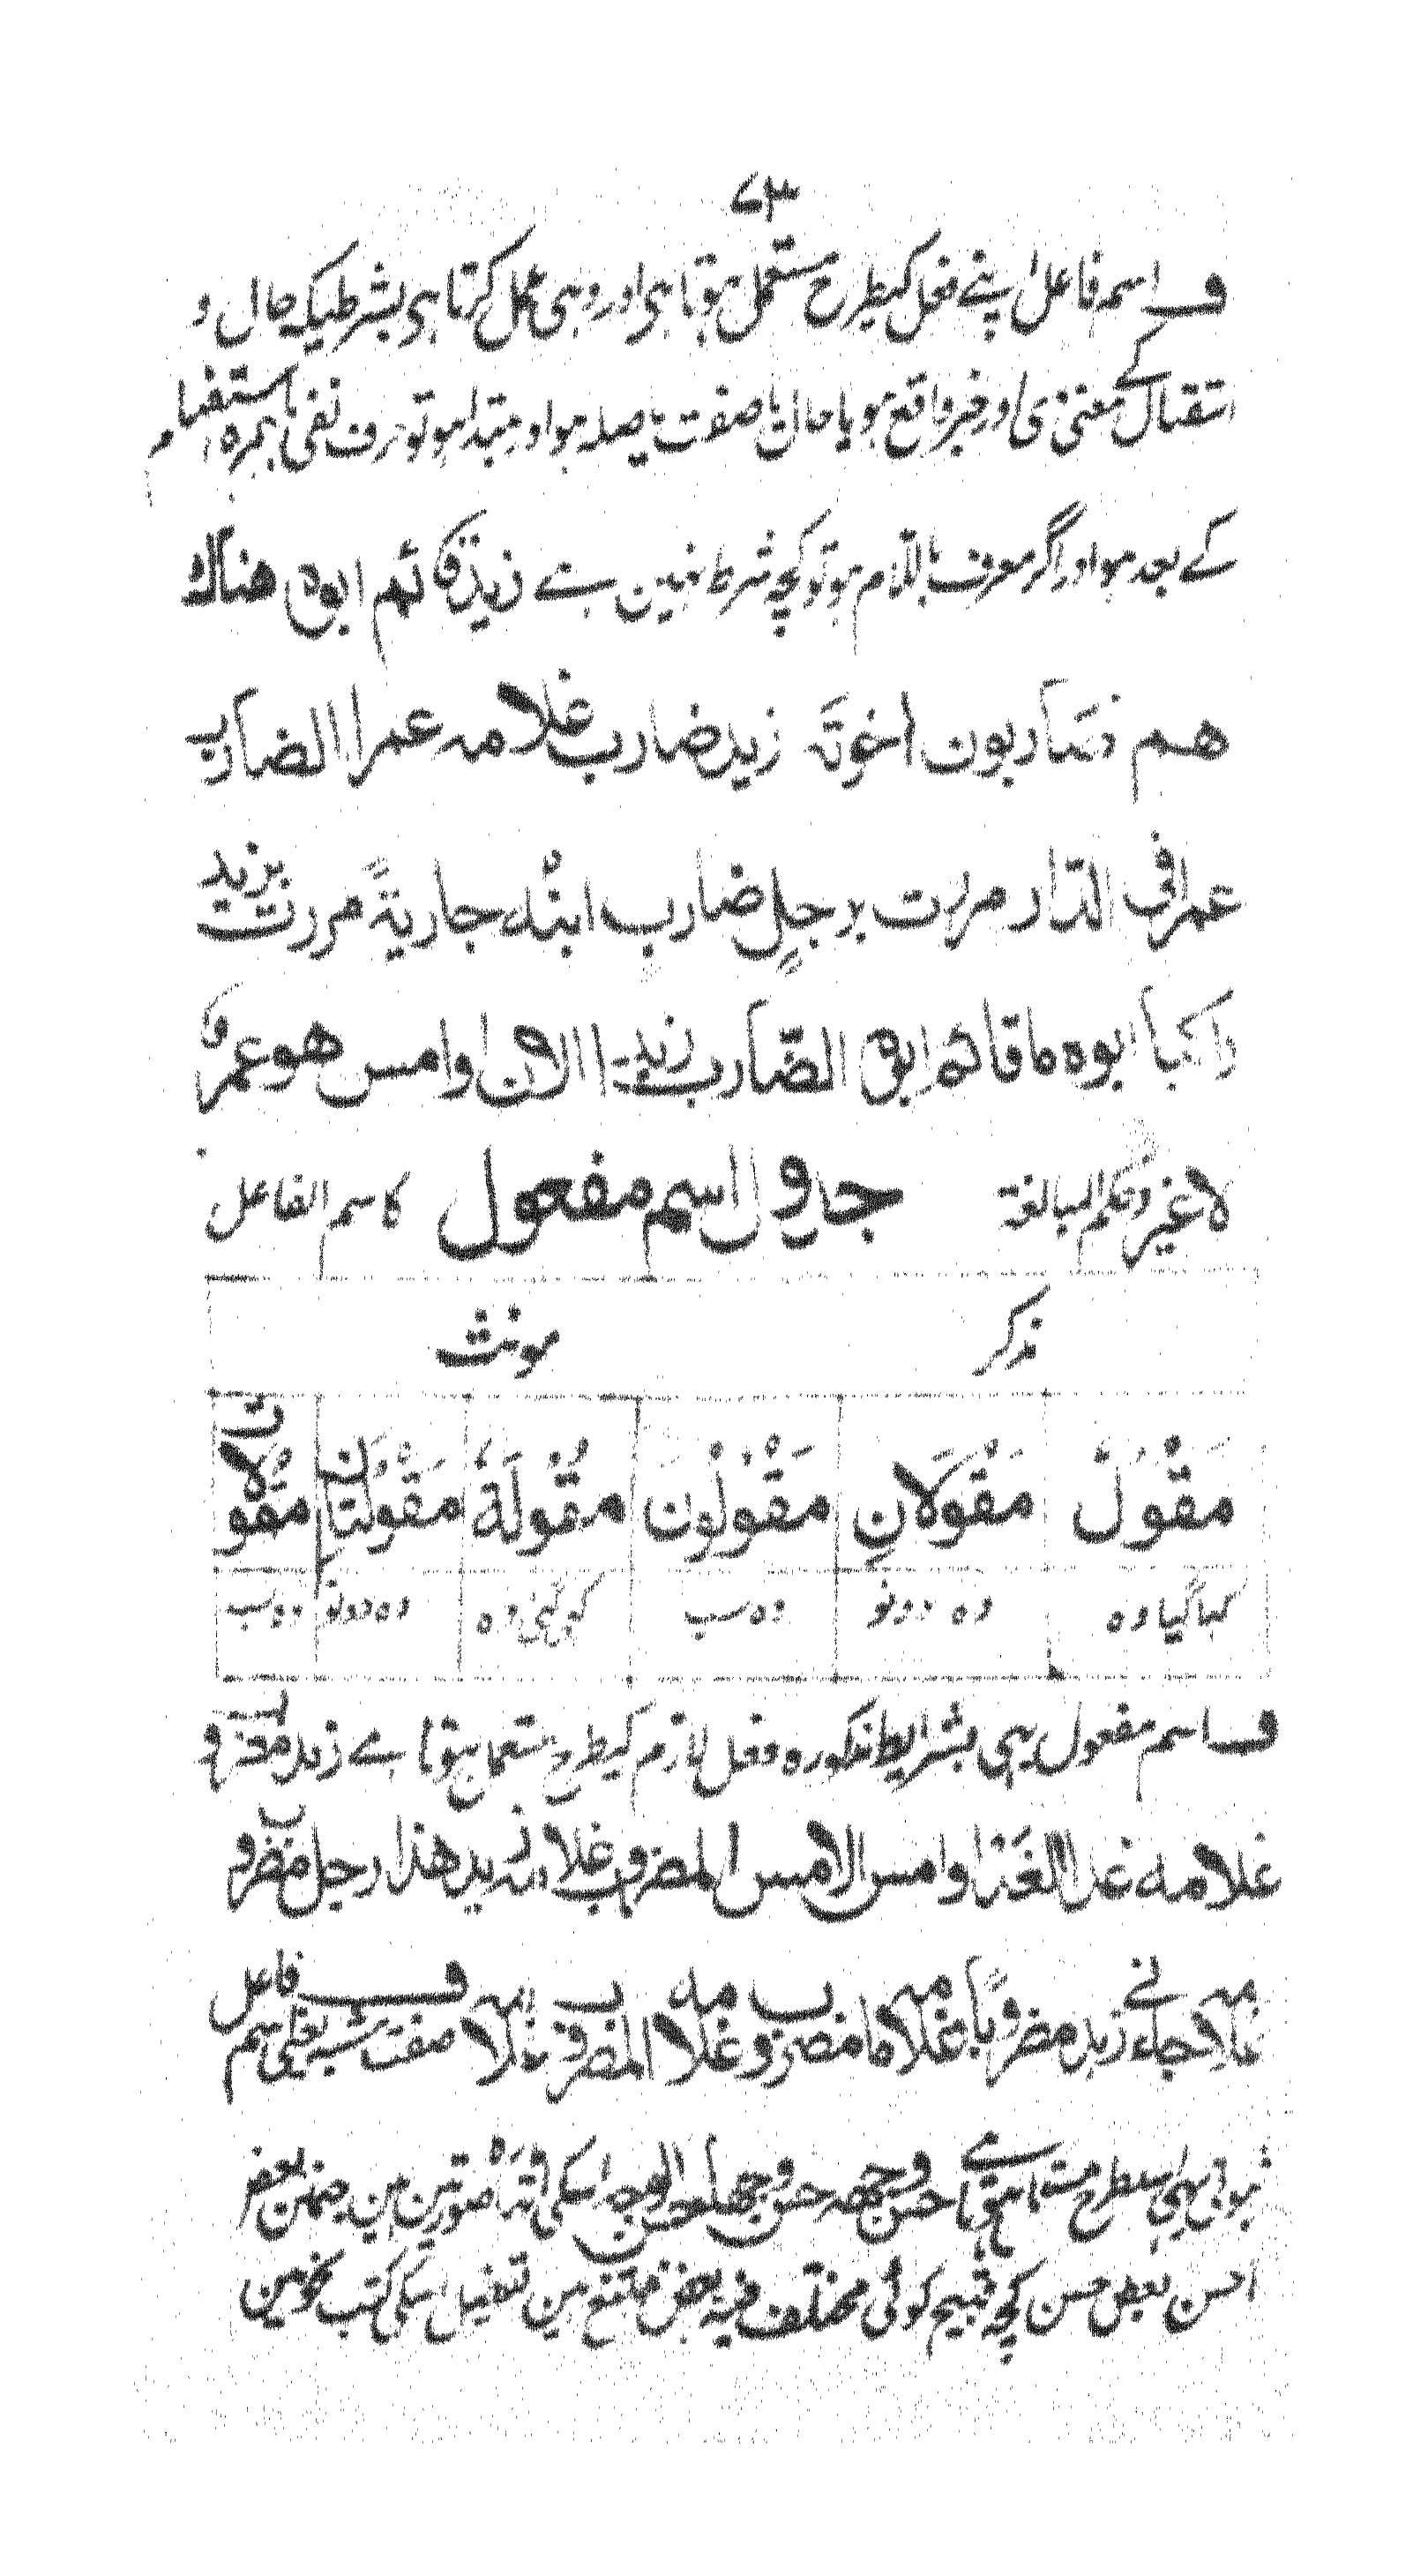 ۷۳
ف اسم فاعل اپنے فعل کیطرح مستعمل ہوتا ہی اور وہی عمل کرتا ہی بشرطیکہ حال و
استقبال کے معنی دی اور خبر واقع ہو یا حال یا صفت یا صلہ ہو اور مبتدا ہو تو حرف نفی یا ہمزہ استفہام
کے بعد ہو اور اگر معرف باللام ہو تو کچھ شرط نہین جیسے زید قائم ابوہ هناك
هم ضاربون اخوته زید ضارب غلامه عمرا الضارب
عمرا فی الدار مررت برجلٍ ضارب ابنُه جاریةً مررت بزید
راکبا ابوه ما قائم ابوہ الضارب زیدا الان او امس هو عمرو
لا غیر وحکم المبالغة کاسم الفاعل
جدول اسم مفعول
مذکر مونث
مَقُوْلٌ مَقُوْلَانِ مَقُوْلُوْنَ مَقُوْلَةٌ مَقُوْلَتَانِ مَقُوْلَاتٌ
کہا گیا وہ وہ دونو وہ سب کہی گئی وہ وہ دونو وہ سب
ف اسم مفعول بہی بشرایط مذکورہ فعل لازم کیطرح مستعمل ہوتا ہے زید مضروب
غلامه غدا او امس الامس المضروب غلامه زید هذا رجل مضروب
غلامه جاءنی زید مضروباً غلامه ما مضروب غلامه المضروب غلامه ف صفت مشبہ یعنی اسم فاعل
ثبوتی بہی اسطرح مستعمل ہوتا حسن وجهه حسن وجها حسن الوجه اسکی اٹہارہ صورتین ہین جنمین بعض
احسن بعض حسن کچھ قبیح کوئی مختلف فیہ بعض ممتنع ہین تفصیل اسکی کتب نحو مین